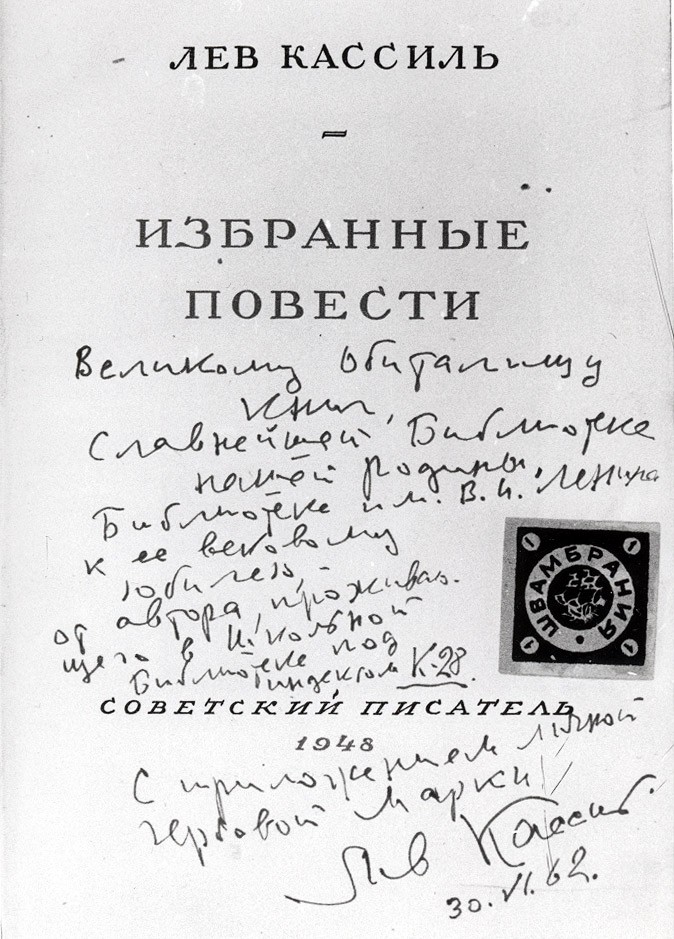 ЛЕВ КАССИЛЬ
ИЗБРАННЫЕ
ПОВЕСТИ
Великому Обиталищу
книг,
Славнейшей Библиотеке
нашей родины,
Библиотеке им. В. И. Ленина
к ее вековому
юбилею,-
от автора, проживаю-
щего в школьной
Библиотеке под
индексом К-28.
1 1
ШВАМБРАНИЯ
1 1
СОВЕТСКИЙ ПИСАТЕЛЬ
1948
С приложением личной
гербовой марки
Лев Кассиль
30.VI.62.